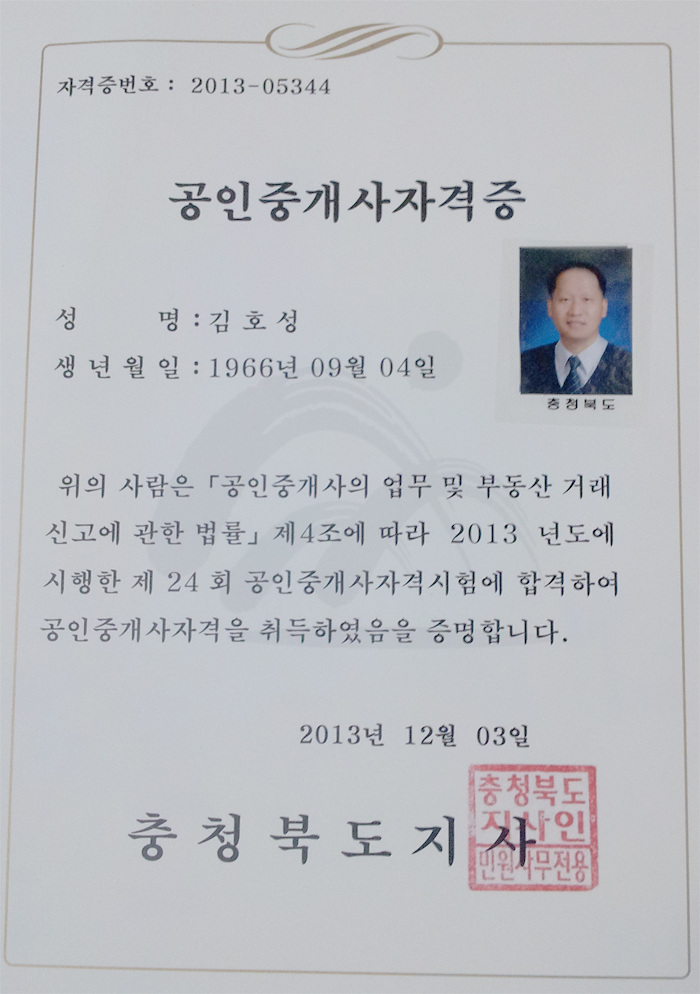 자격증번호 : 2013-05344
공인중개사자격증
성 명 : 김 호 성
생 년 월 일 : 1966년 09월 04일
충청북도
위의 사람은 「공인중개사의 업무 및 부동산 거래
신고에 관한 법률」 제4조에 따라 2013 년도에
시행한 제 24 회 공인중개사자격시험에 합격하여
공인중개사자격을 취득하였음을 증명합니다.
2013년 12월 03일
충 청 북 도 지 사
충청북도
지사인
민원사무전용